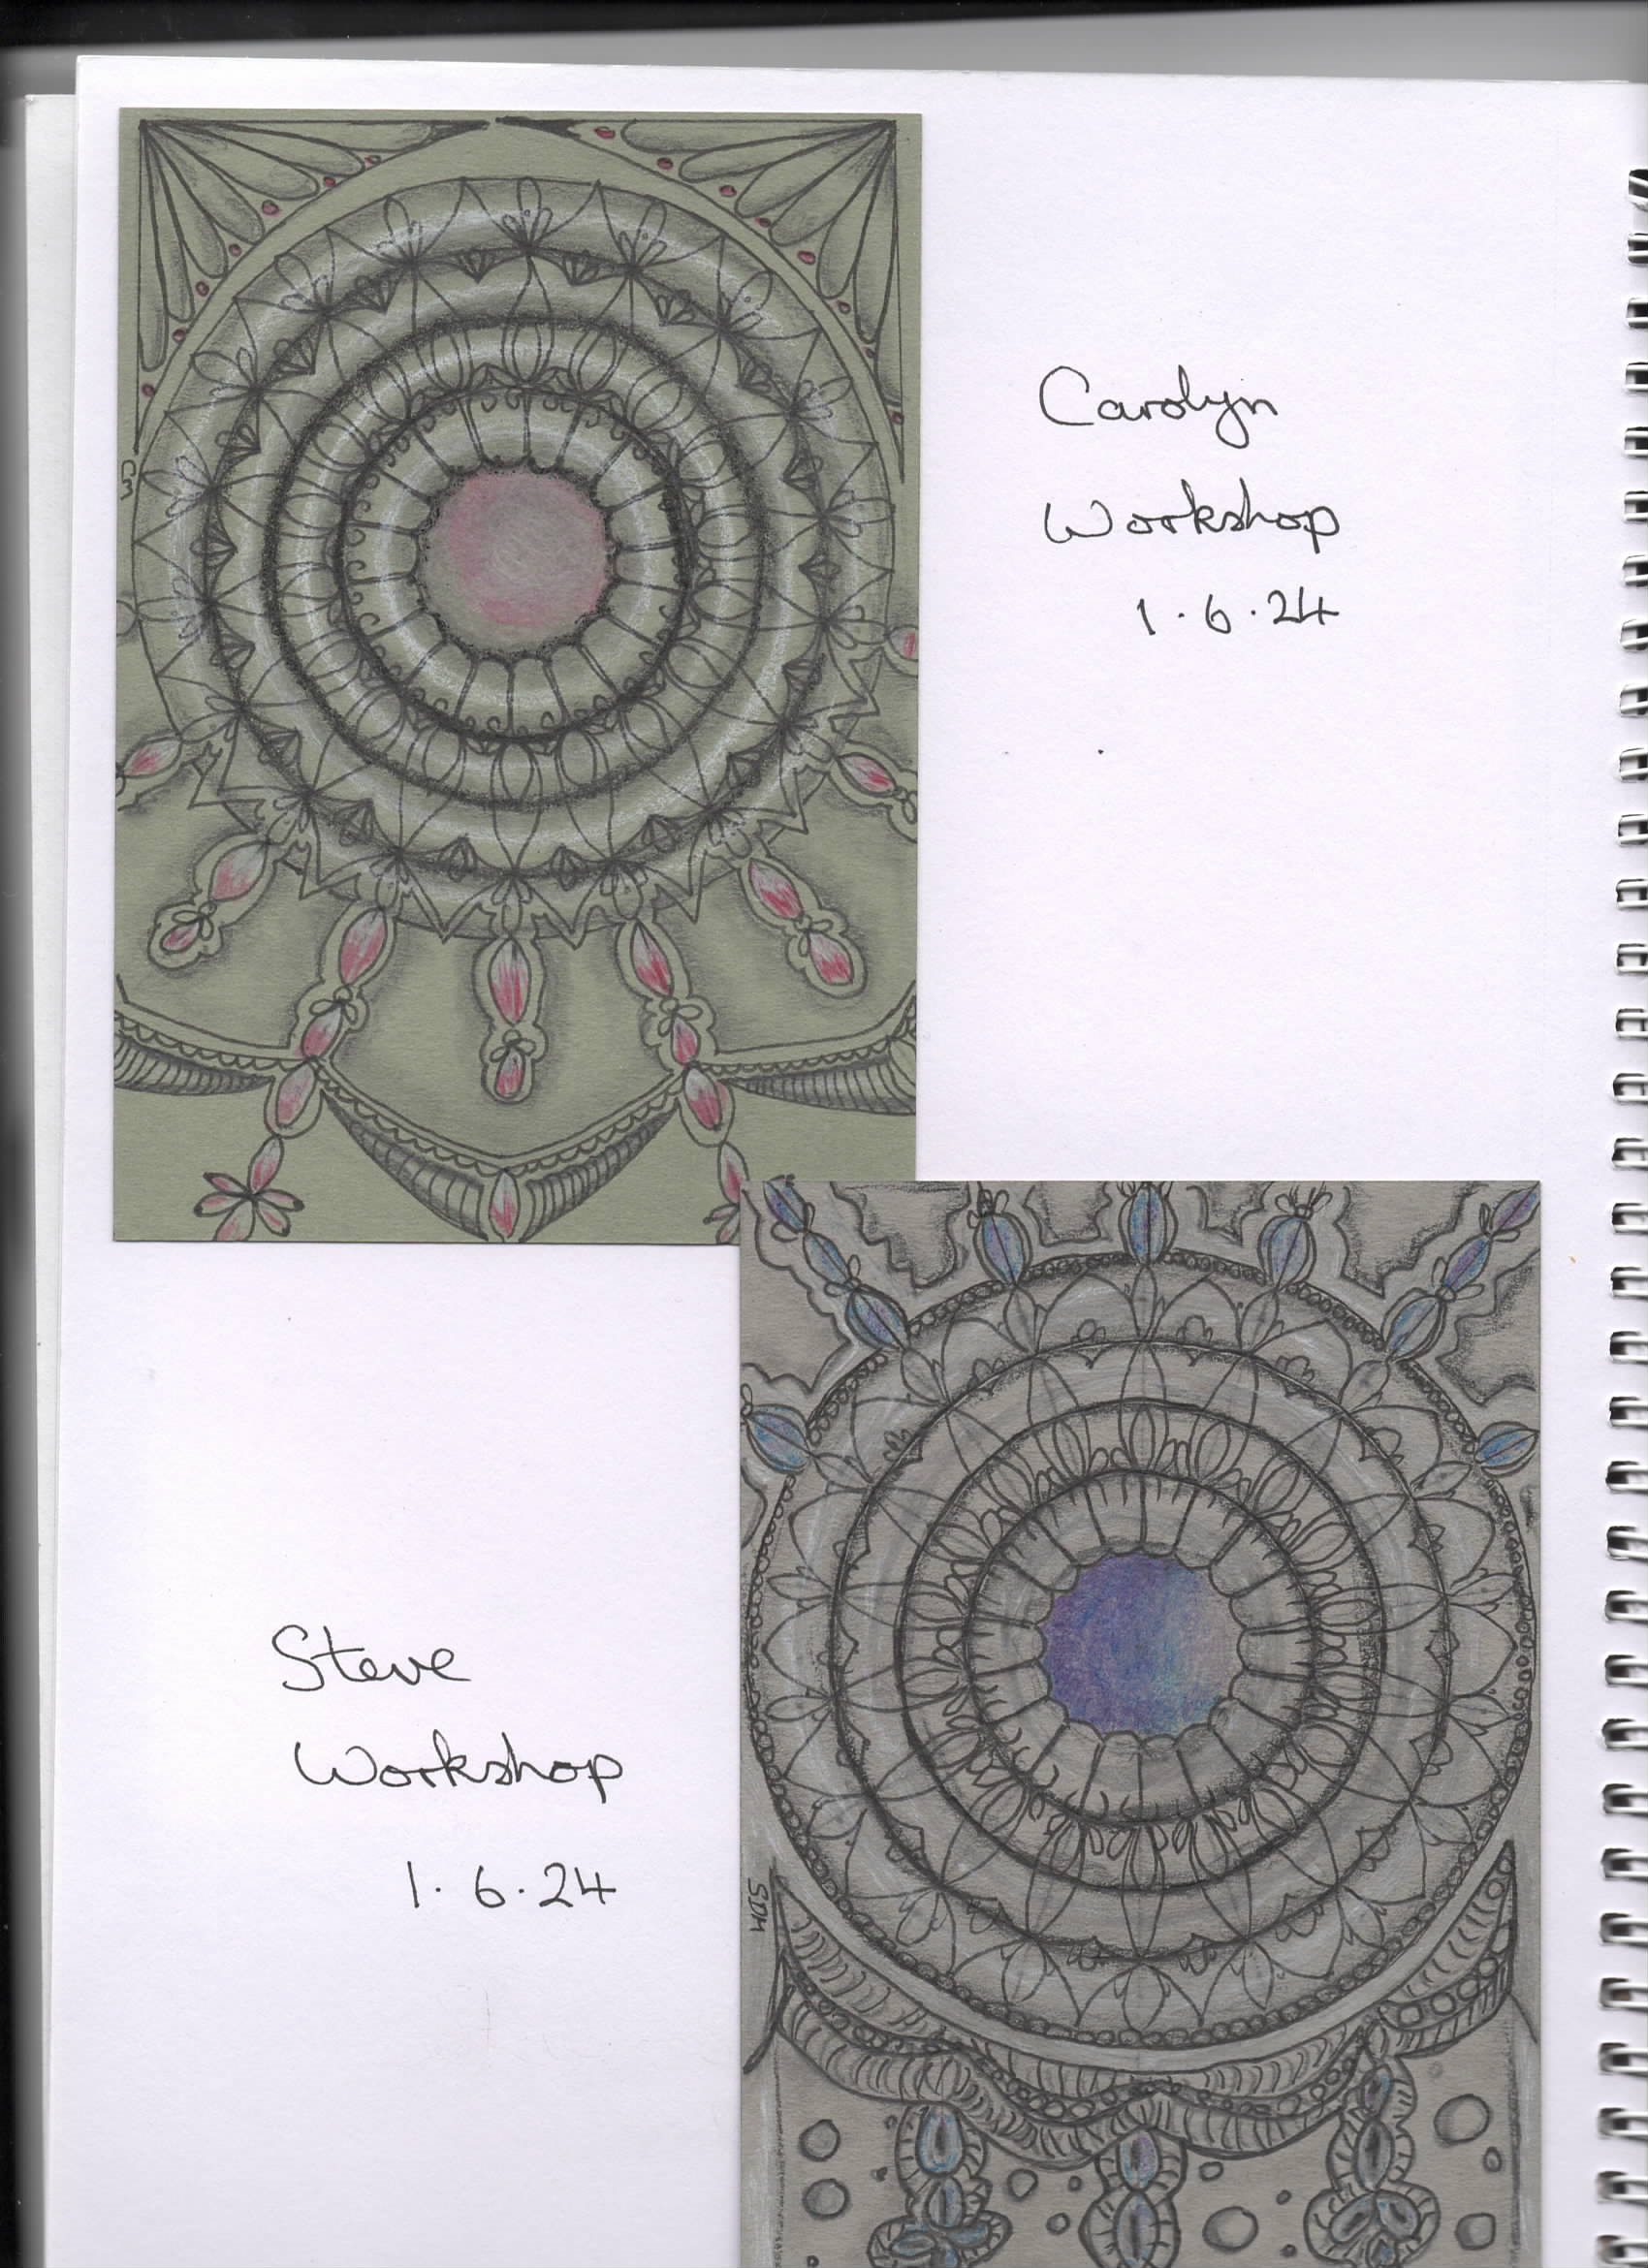 Carolyn
Workshop
1.6.24
Cm
Steve
Workshop
1.6.24
SDM